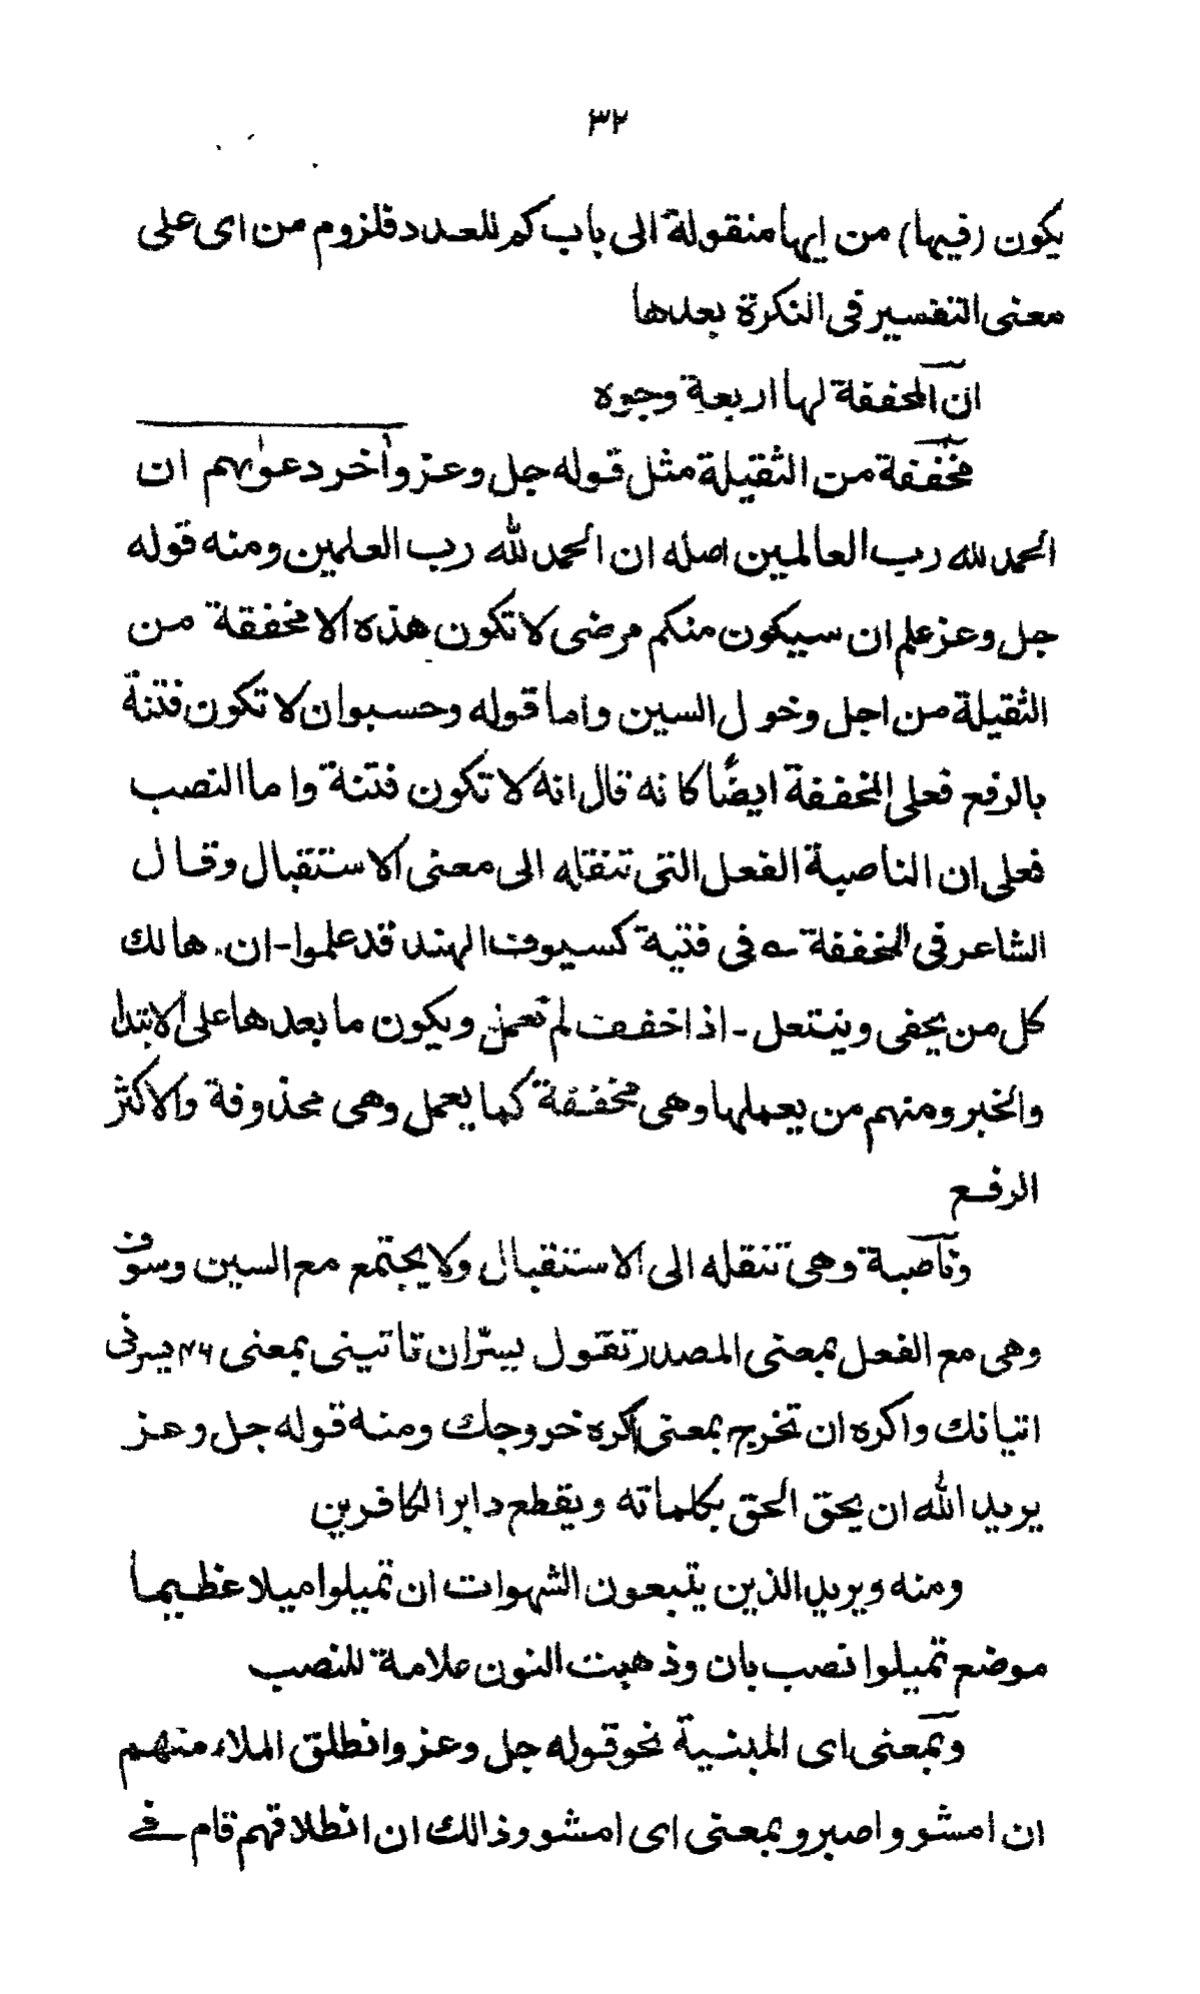 ٣٢
يكون (فيها) من ايها منقولة الى باب كم للعدد فلزوم من اى على
معنى التفسير فى النكرة بعدها
ان المخففة لها اربعة وجوه
مخففة من الثقيلة مثل قوله جل وعز وآخر دعوٰىهم ان
الحمد لله رب العالمين اصله ان الحمد لله رب العلمين ومنه قوله
جل وعز علم ان سيكون منكم مرضى لا تكون هذه الا مخففة من
الثقيلة من اجل وخول السين واما قوله وحسبوا ان لا تكون فتنة
بالرفع فعلى المخففة ايضًا كانه قال انه لا تكون فتنة واما النصب
فعلى ان الناصبة الفعل التى تنقله الى معنى الاستقبال وقال
الشاعر فى المخففة ؎ فى فتية كسيوف الهند قد علموا - ان هالك
كل من يحفى وينتعل - اذا خففت لم تعمل ويكون ما بعدها على الابتدا
والخبر ومنهم من يعملها وهى مخففة كما يعمل وهى محذوفة والاكثر
الرفع
وناصبة وهى تنقله الى الاستقبال ولا يجتمع مع السين وسوف
وهى مع الفعل بمعنى المصدر تقول يسرّ ان تاتينى بمعنى يسرنى
اتيانك واكره ان تخرج بمعنى اكره خروجك ومنه قوله جل وعز
يريد الله ان يحق الحق بكلماته ويقطع دابر الكافرين
ومنه ويريد الذين يتبعون الشهوات ان تميلوا ميلا عظيما
موضع تميلوا نصب بان وذهبت النون علامة للنصب
وبمعنى اى المبنية نحو قوله جل وعز وانطلق الملاء منهم
ان امشو واصبرو بمعنى اى امشو وذالك ان انطلاقهم قام فے